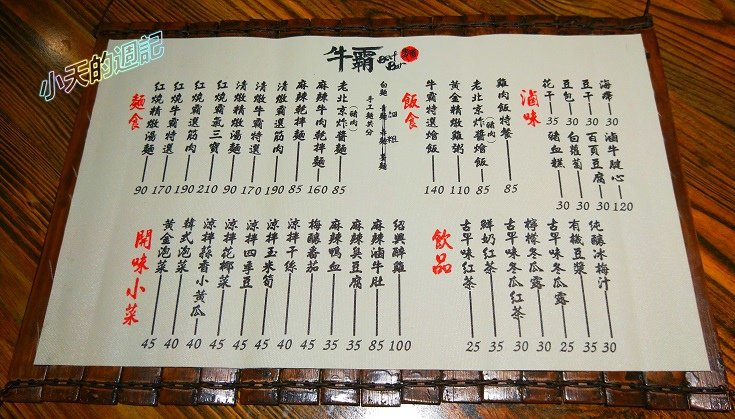 小天的週記
牛霸
Beef Bar
麵食
紅燒精燉湯麵 90
紅燒牛霸特選 170
紅燒霸選筋肉 190
紅燒霸氣三寶 210
清燉精燉湯麵 90
清燉牛霸特選 170
清燉霸選筋肉 190
麻辣乾拌麵 85
麻辣牛肉乾拌麵 160
老北京炸醬麵(豬肉) 85
手工麵共分
飯食
牛霸特選燴飯 140
黃金精燉雞粥 110
老北京炸醬燴飯(豬肉) 85
雞肉飯特餐 85
滷味
花干 35
豆包 30
豆干 30
海帶 30
豬血糕 30
白蘿蔔 30
百頁豆腐 30
滷牛腱心 120
開味小菜
黃金泡菜 45
韓式泡菜 40
涼拌蒜香小黃瓜 40
涼拌花椰菜 45
涼拌四季豆 40
涼拌玉米筍 45
涼拌干絲 40
梅釀番茄 45
麻辣鴨血 35
麻辣臭豆腐 35
麻辣滷牛肚 85
紹興醉雞 100
飲品
古早味紅茶 25
鮮奶紅茶 35
古早味冬瓜紅茶 30
檸檬冬瓜露 30
古早味冬瓜露 25
有機豆漿 35
純釀冰梅汁 30